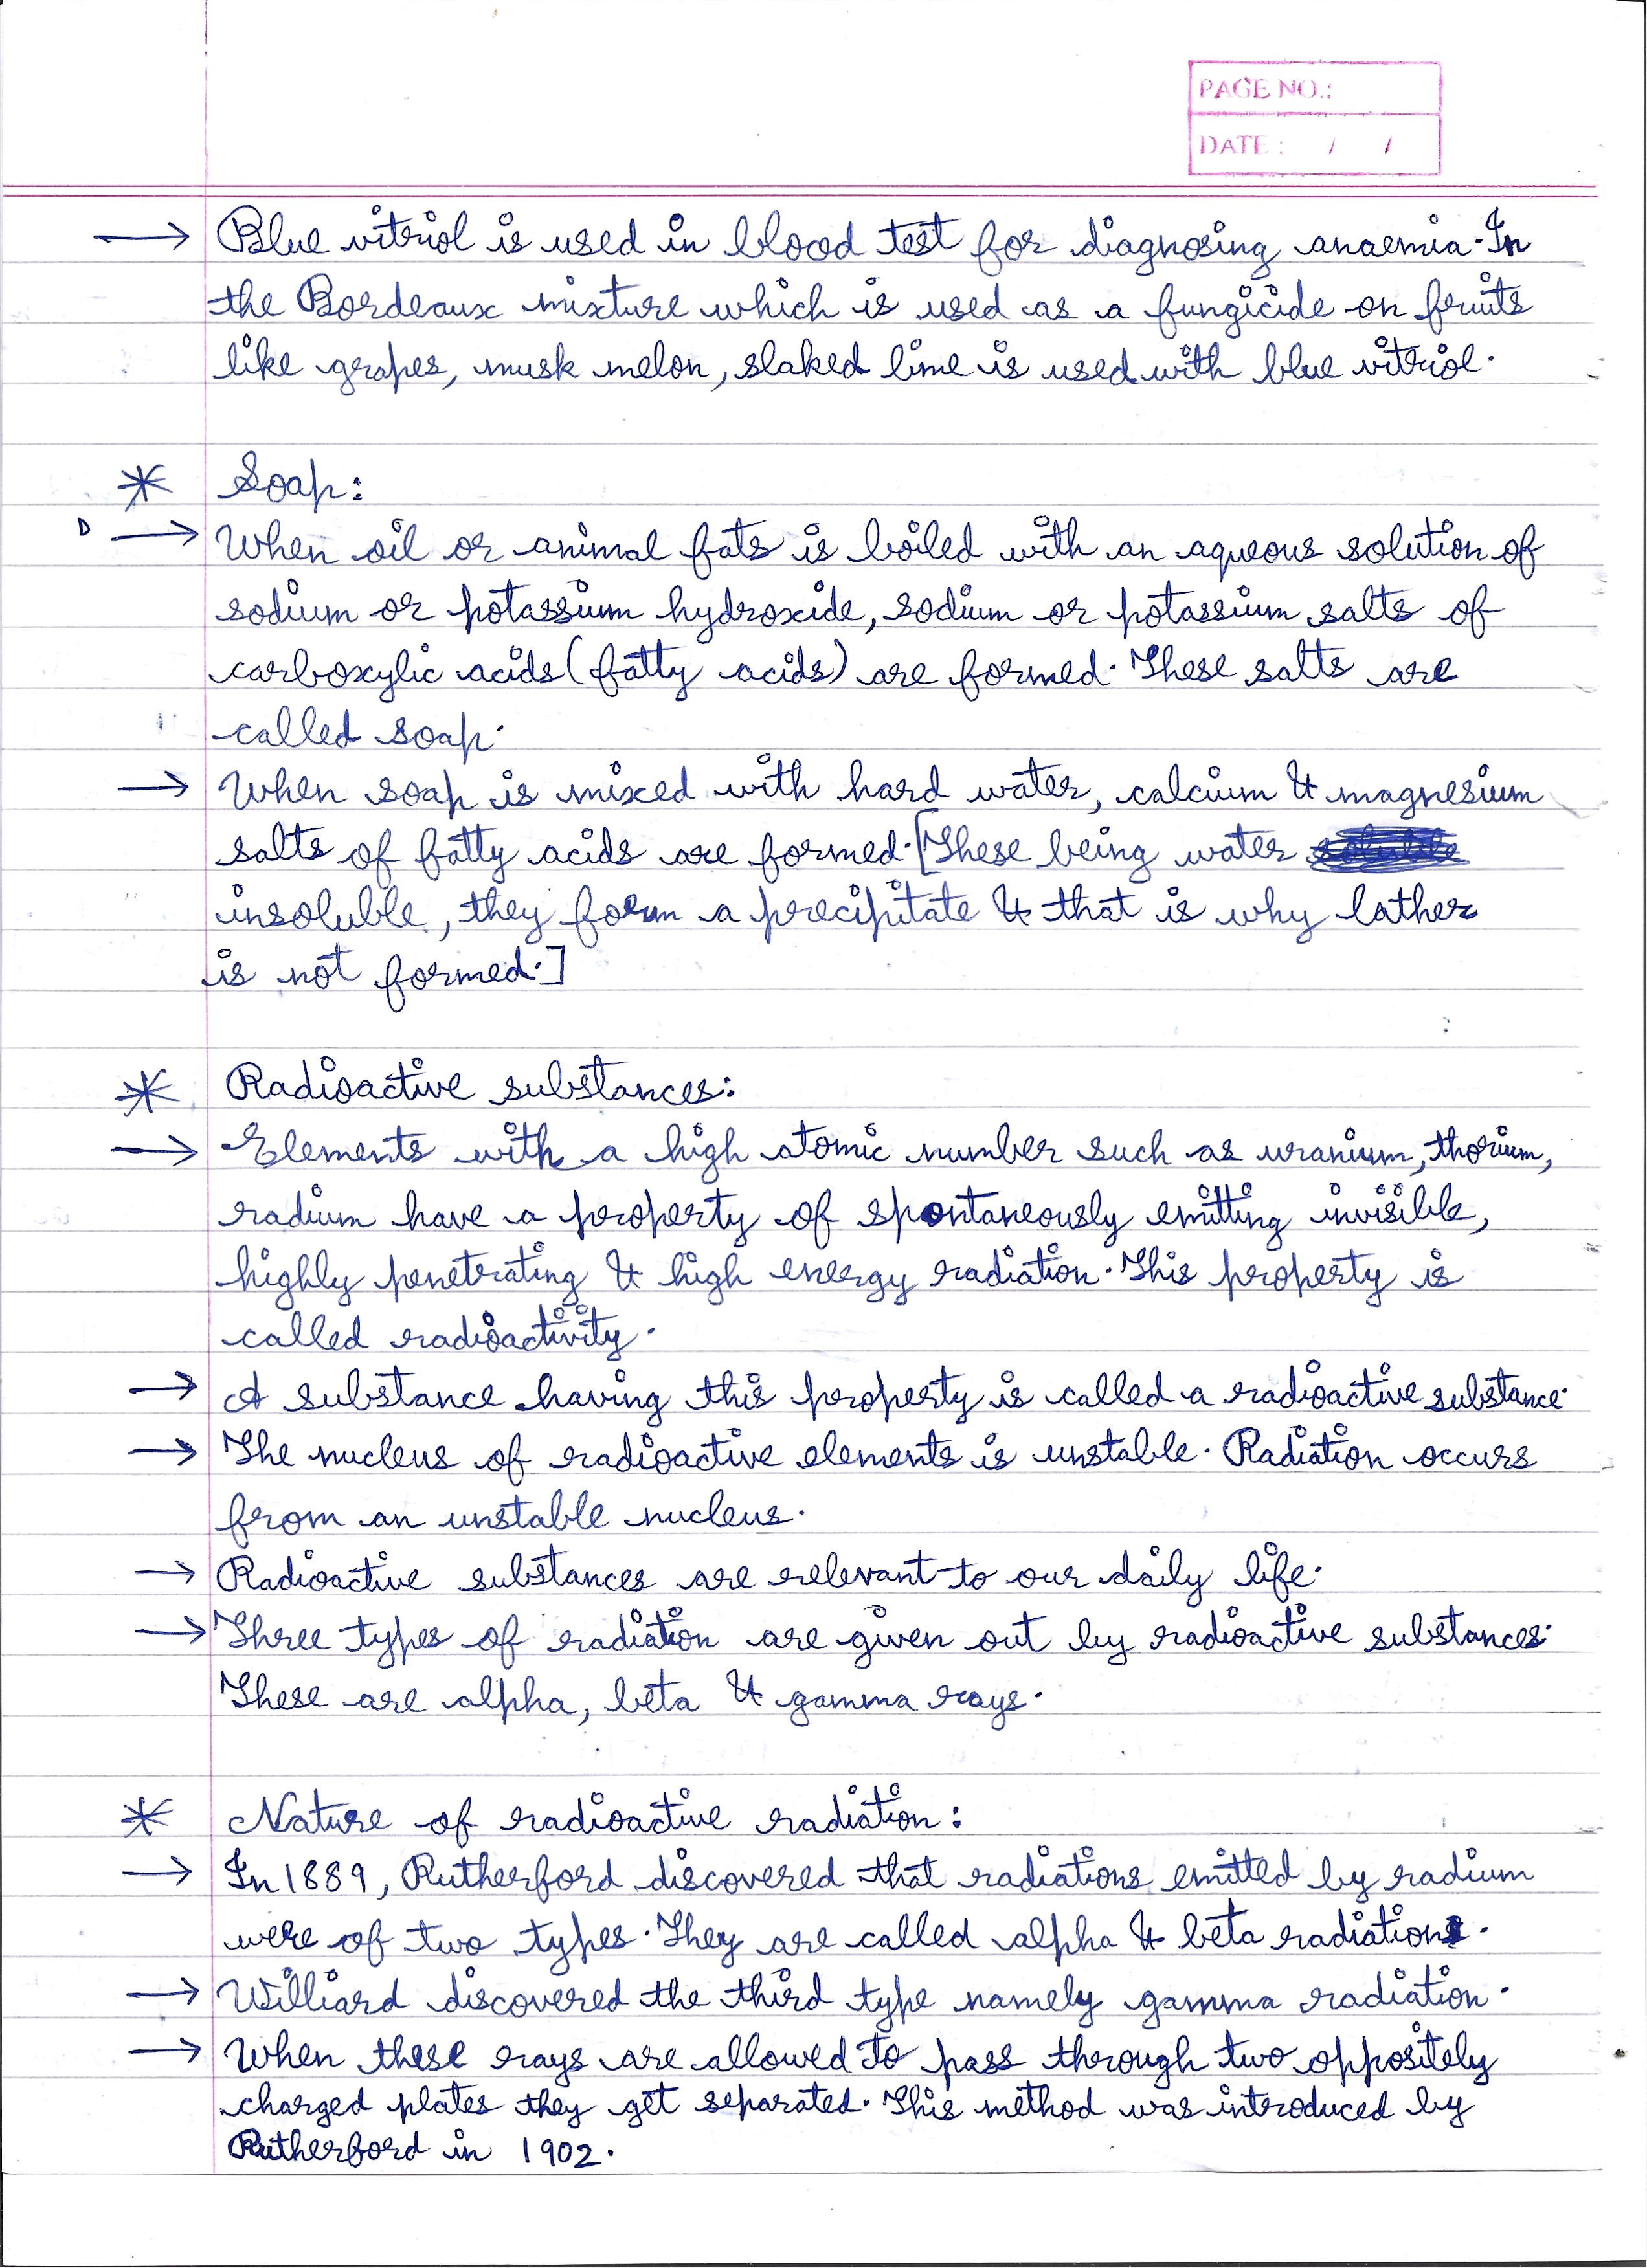 PAGE NO.:
DATE : / /
→ Blue vitriol is used in blood test for diagnosing anaemia. In
the Bordeaux mixture which is used as a fungicide on fruits
like grapes, musk melon, slaked lime is used with blue vitriol.
* Soap:
→ When oil or animal fats is boiled with an aqueous solution of
sodium or potassium hydroxide, sodium or potassium salts of
carboxylic acids (fatty acids) are formed. These salts are
called soap.
→ When soap is mixed with hard water, calcium & magnesium
salts of fatty acids are formed. [These being water
insoluble, they form a precipitate & that is why lather
is not formed.]
* Radioactive substances:
→ Elements with a high atomic number such as uranium, thorium,
radium have a property of spontaneously emitting invisible,
highly penetrating & high energy radiation. This property is
called radioactivity.
→ A substance having this property is called a radioactive substance.
→ The nucleus of radioactive elements is unstable. Radiation occurs
from an unstable nucleus.
→ Radioactive substances are relevant to our daily life.
→ Three types of radiation are given out by radioactive substances.
These are alpha, beta & gamma rays.
* Nature of radioactive radiation:
→ In 1889, Rutherford discovered that radiations emitted by radium
were of two types. They are called alpha & beta radiations.
→ Williard discovered the third type namely gamma radiation.
→ When these rays are allowed to pass through two oppositely
charged plates they get separated. This method was introduced by
Rutherford in 1902.